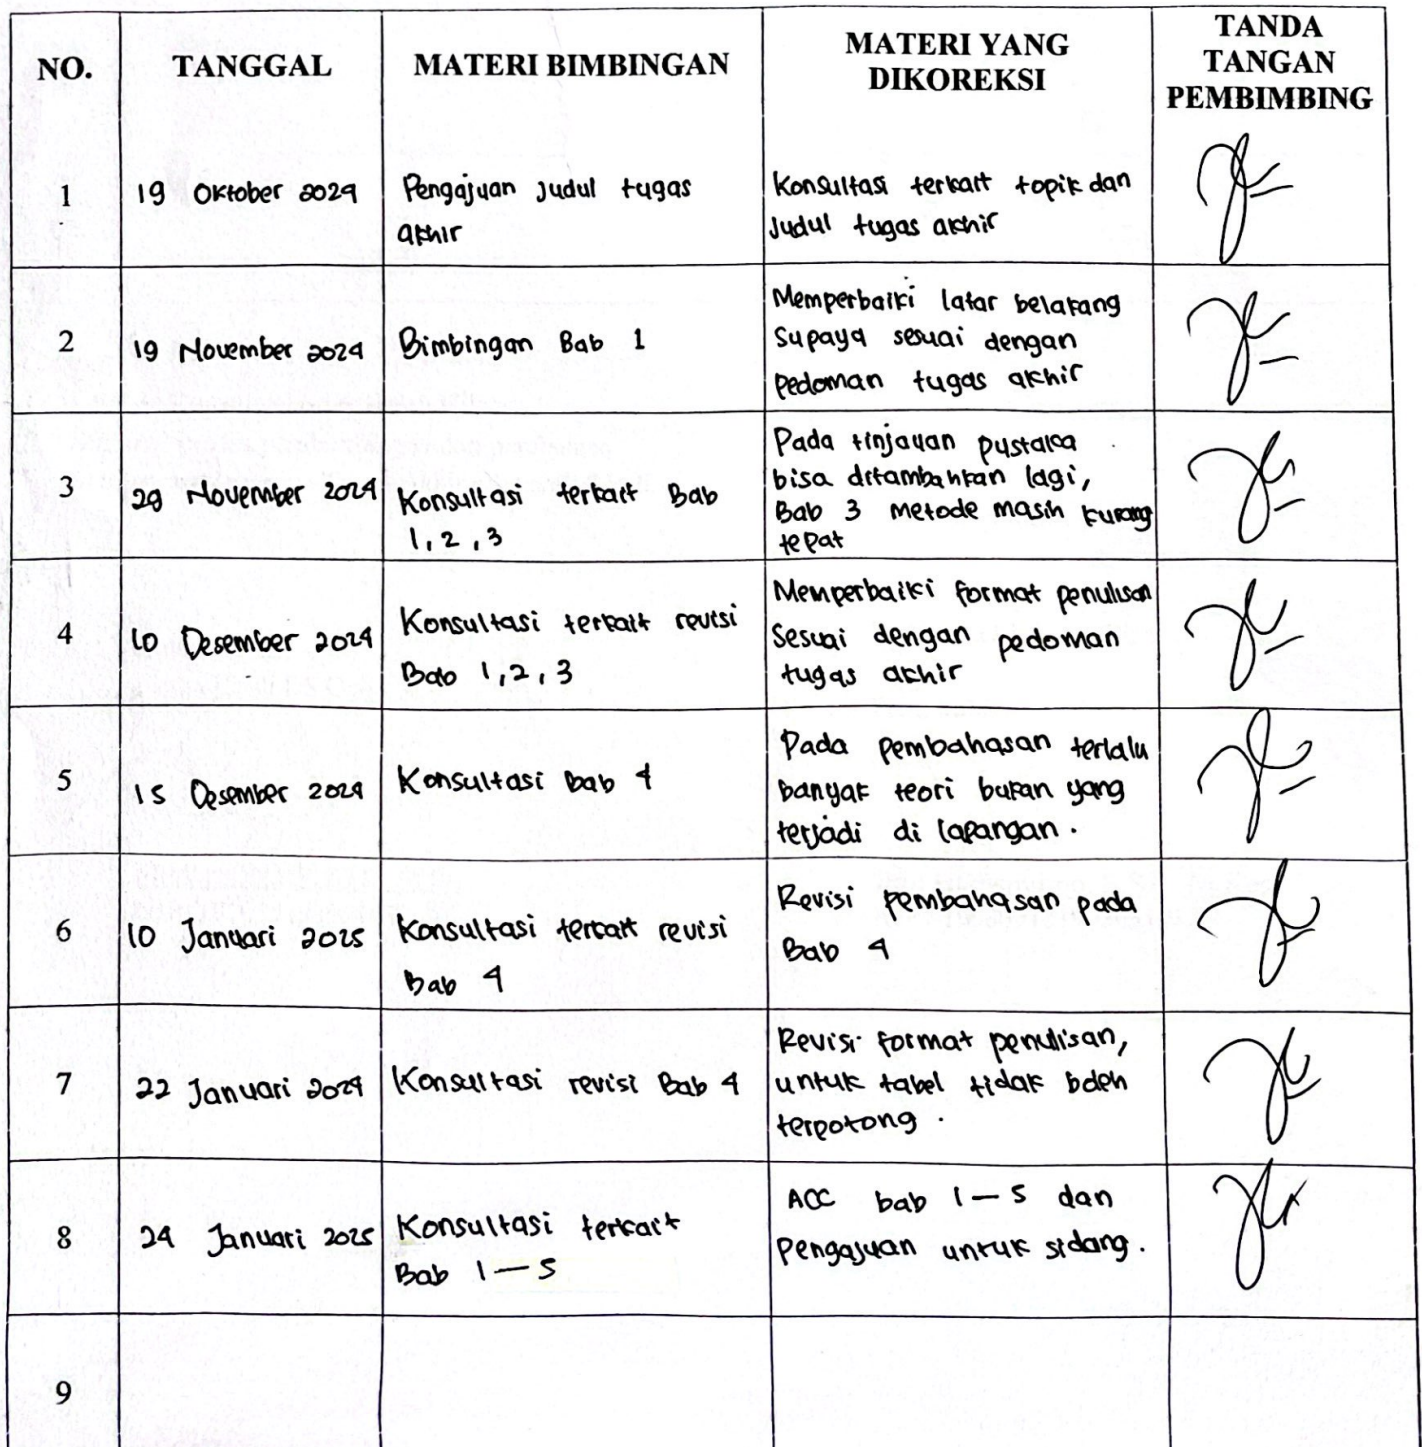 NO. TANGGAL MATERI BIMBINGAN MATERI YANG DIKOREKSI TANDA TANGAN PEMBIMBING
1 19 Oktober 2024 Pengajuan Judul tugas akhir Konsultasi terkait topik dan Judul tugas akhir
2 19 November 2024 Bimbingan Bab 1 Memperbaiki latar belakang Supaya sesuai dengan pedoman tugas akhir
3 28 November 2024 Konsultasi terkait Bab 1, 2, 3 Pada tinjauan pustaka bisa ditambahkan lagi, Bab 3 metode masih kurang tepat
4 10 Desember 2024 Konsultasi terkait revisi Bab 1, 2, 3 Memperbaiki format penulisan Sesuai dengan pedoman tugas akhir
5 15 Desember 2024 Konsultasi Bab 4 Pada pembahasan terlalu banyak teori bukan yang terjadi di lapangan.
6 10 Januari 2025 Konsultasi terkait revisi Bab 4 Revisi pembahasan pada Bab 4
7 22 Januari 2024 Konsultasi revisi Bab 4 Revisi format penulisan, untuk tabel tidak boleh terpotong.
8 24 Januari 2025 Konsultasi terkait Bab 1 — 5 ACC bab 1 — 5 dan Pengajuan untuk sidang.
9